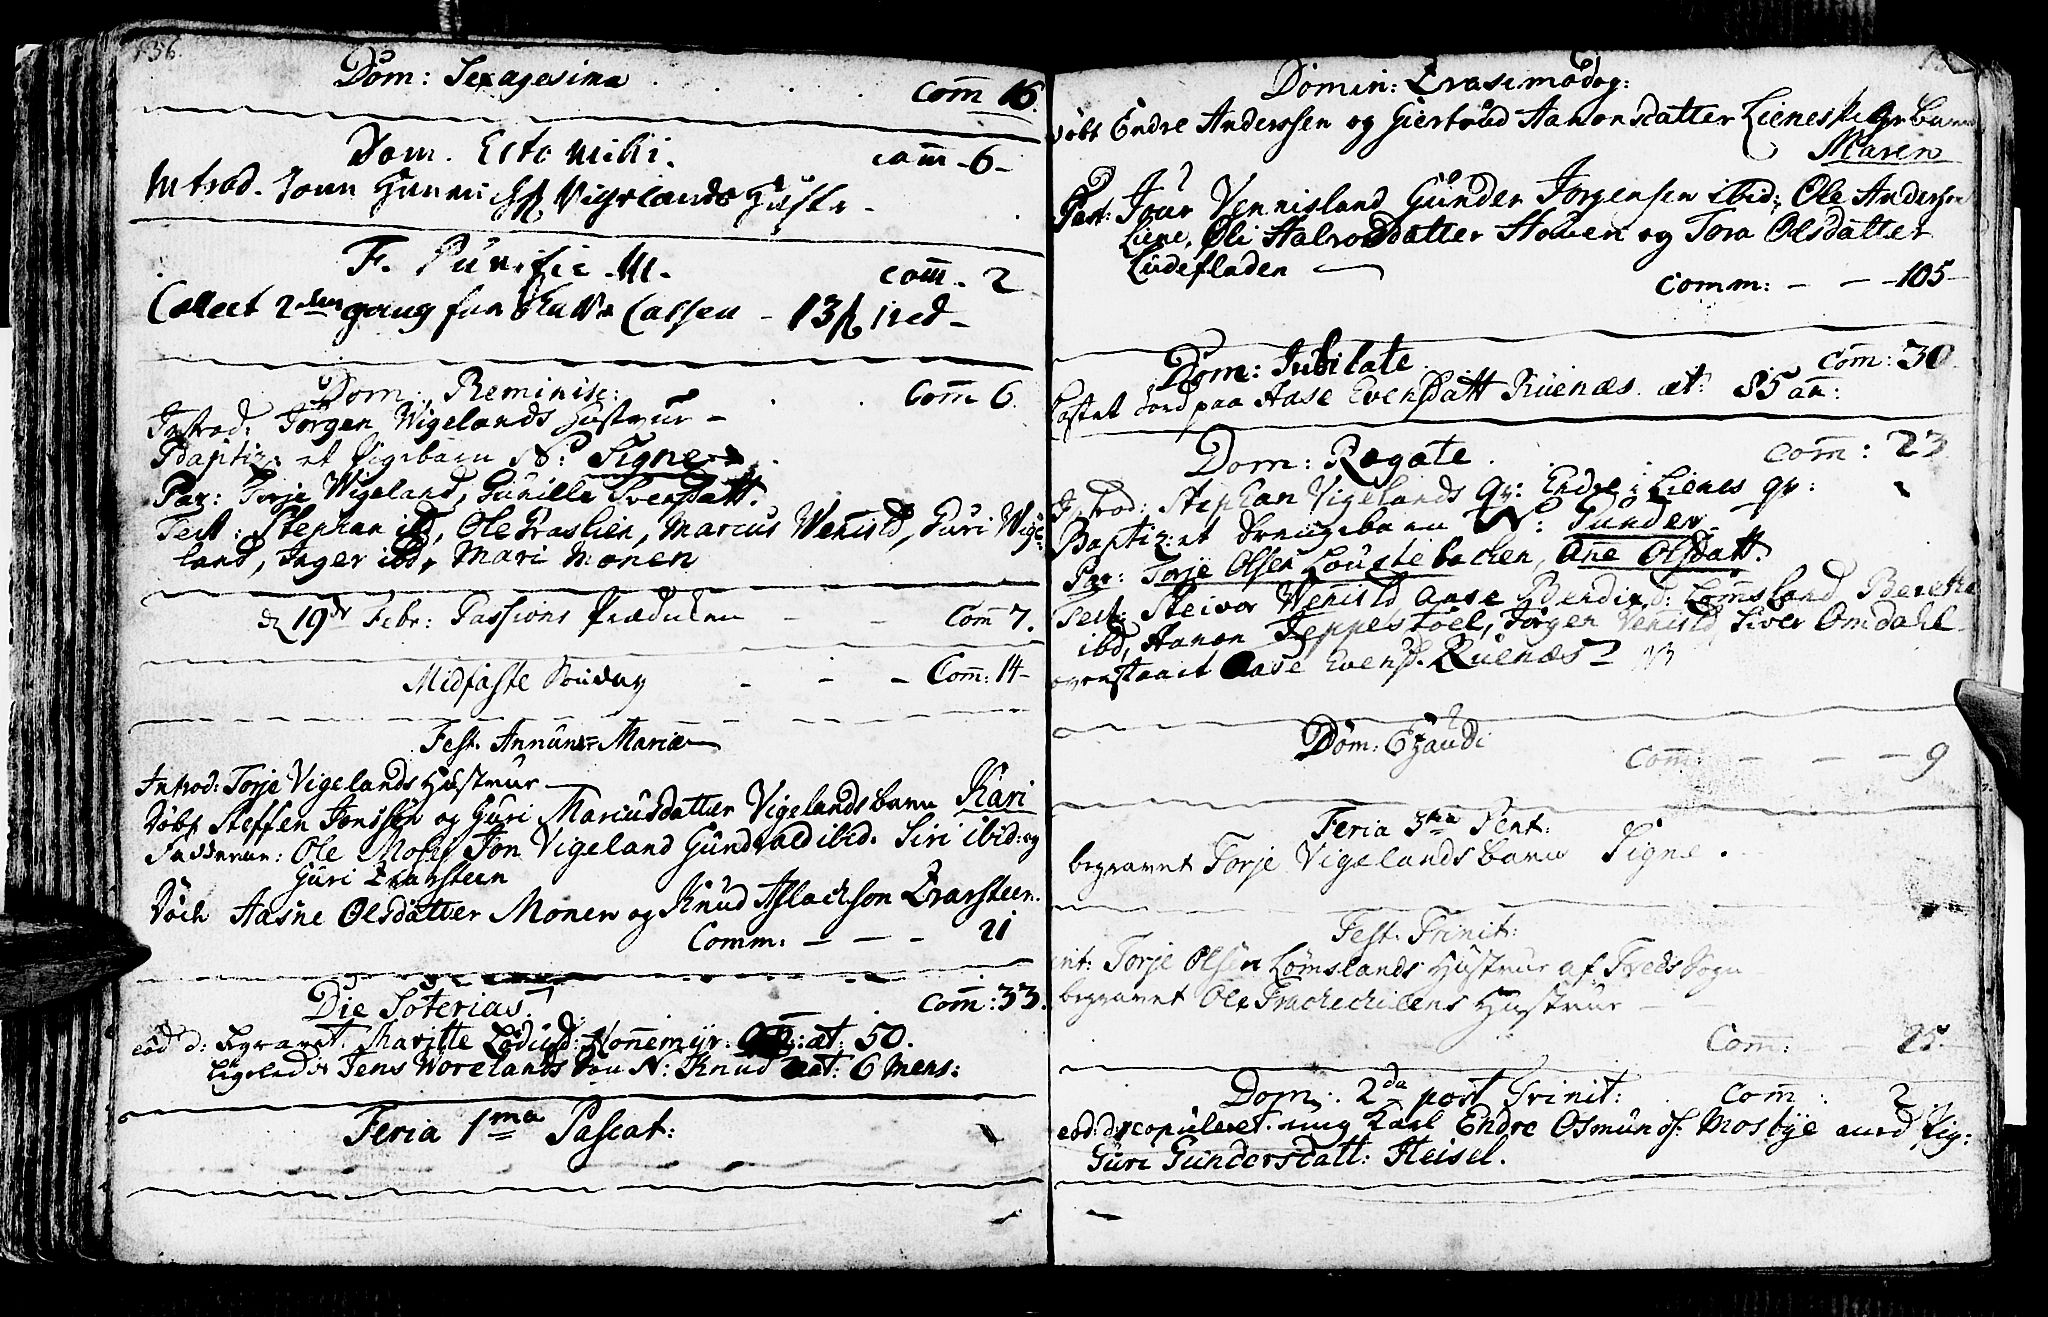 136.
Dom: Sexagesima . . . . Com̄ 16.
Dom. Esto mihi. com̄ - 6 -
Introd. Vigelands Hustr -
F. Purific. M. com̄ . 2
Collect 2den gang for Cassen - 13 ß
Dom: Reminisc: . . Com̄ 6.
Introd: Jørgen Wigelands Hustrue -
Baptiz: et Pigebarn N: Signe
Par: Torje Wigeland, Gunille Svensdatt.
Test: Stephan ibd, Ole Braslien, Marcus Wenisld, Guri Wige-
land, Inger ibd, Mari Monen
d 19de Febr: Passions Prædiken - - Com̄ 7.
Midfaste Søndag - - - Com̄: 14 -
Fest. Annunt: Mariæ
Introd: Torje Vigelands Hustrue
Døbt Steffen Jonssen og Guri Marcusdatter Vigelands barn Kari
Fadderne: Ole Moseb Jon Vigeland Gundvald ibid. Siri ibid: og
Guri Drarsteen
Aasne Olsdatter Monen og Knud Aslachson Drarsteen.
Comm: - - - 21
Die Soterias. Com̄: 33.
eod d: Begravet. Maritte Ledusd: Honnemyr. æt: 50.
ligeledes Jens Worelands N: Knud æt: 6 Mens:
Feria 1ma Pascat:
Domin: Qvasimodog:
Døbt Endre Andersen og Giertrud Aanonsdatter Lienes Barn
Maren
Fad: Vennisland Gunder Jørgensen ibid; Ole Andersen
Liene, Oli Halvorsdatter Houen og Tora Olsdatter
Lindefladen
Comm: - - - 105 -
Dom: Jubilate. Com̄: 30.
Castet Jord paa Aase Evensdatt Ruenæs. æt: 85 an̄:
Dom: Rogate . . Com̄: 23
Introd: Stephan Vigelands Qv: Endre Lienes qv:
Baptiz: et Drengebarn N: Gunder
Par: Torje Olsen Loustebachen, Ane Olsdatt.
Test: Steivor Wenisld Aase Lomsland Beretha
ibd, Aanon Jeppestoel, Jørgen Venisld, Siver Omdahl
Aase Evensd. Ruenæs
Dom: Exaudi
Com̄: - - - 9
Feria 3tia Pent:
begravet Torje Vigelands barn Signe.
Fest: Trinit:
int: Torje Olsen Lomslands Hustrue af Treds Sogn
begravet Ole Hustrue -
Com̄: - 25.
Dom: 2da post Trinit: Com̄ : 2.
eod: d: copuleret ung Karl Endre Osmunds: Mosbye med Pig:
Guri Gundersdatt: Heisel.